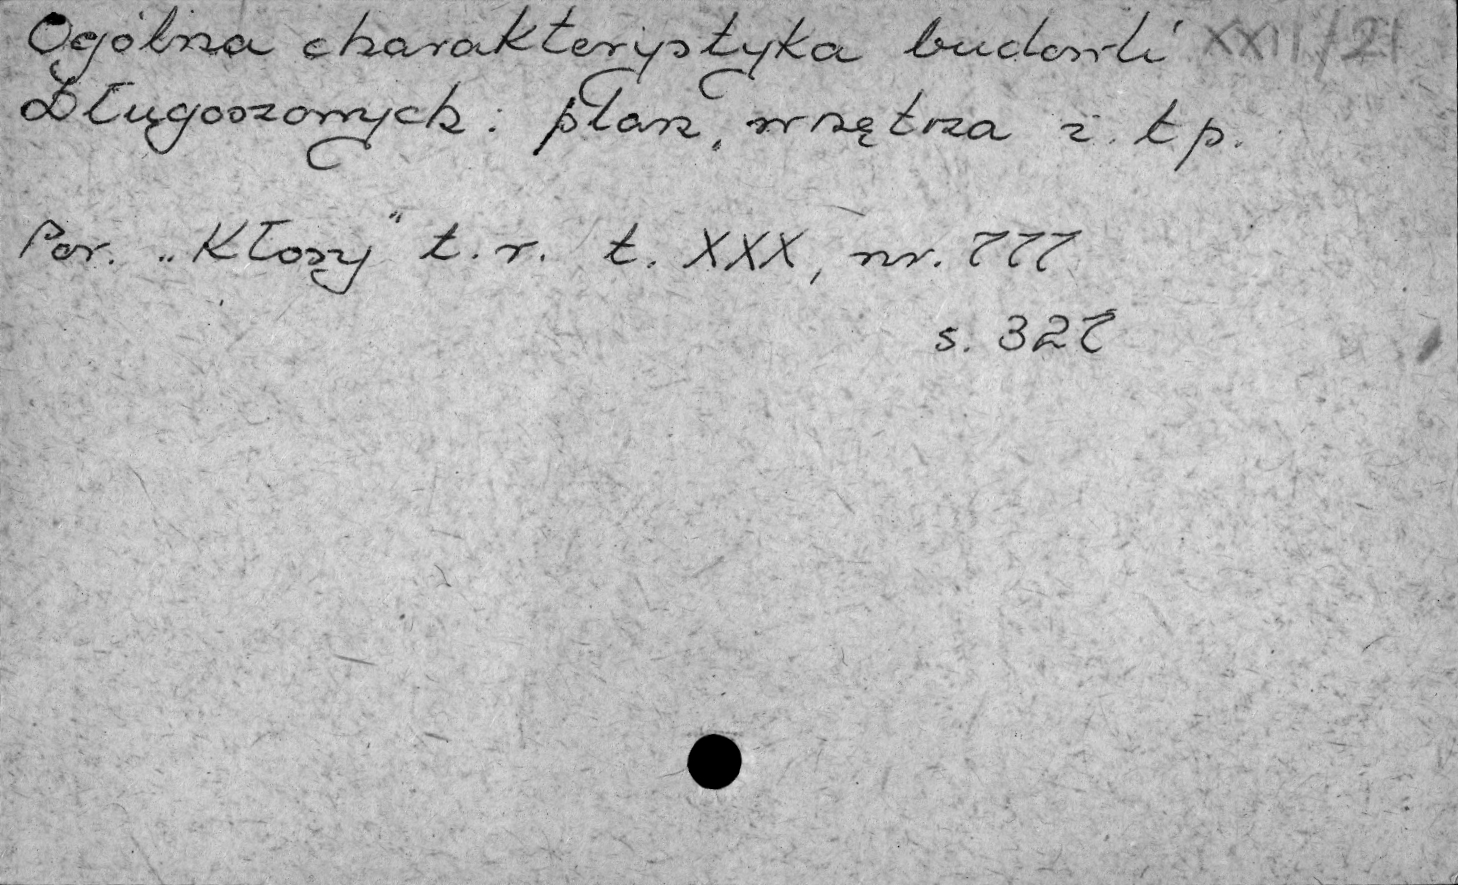 Ogólna charakterystyka budowli XXII/21
Długoszowych: plan, wnętrza i. t. p.
Por. „Kłosy" t. r. t. XXX, nr. 777
s. 327